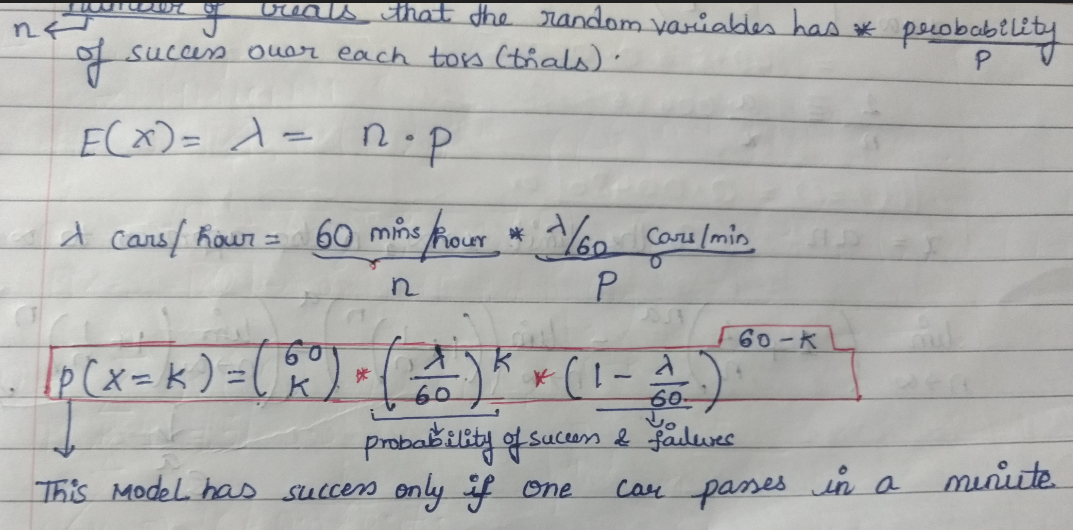 number of treals that the random variables has * probability
n ← of success over each toss (trials). P
E(X) = λ = n . p
λ cars/hour = 60 mins/hour * λ/60 cars/min
n P
60-K
P(X=K) = (60 K) * (λ/60)^K * (1 - λ/60)
probability of success & failures
This Model has success only if one car passes in a meniute